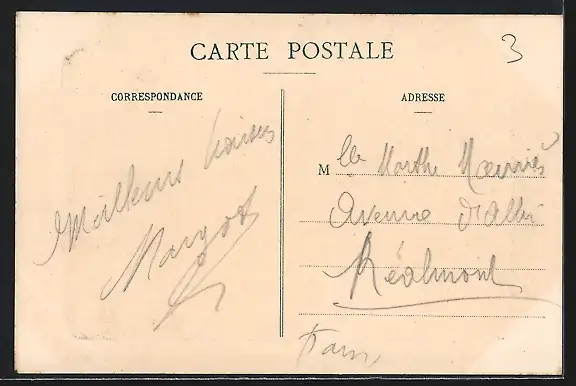 CARTE POSTALE
3
CORRESPONDANCE
ADRESSE
Meilleurs baisers
Margot
Mlle Marthe
Avenue d'Albi
Réalmont
Tarn